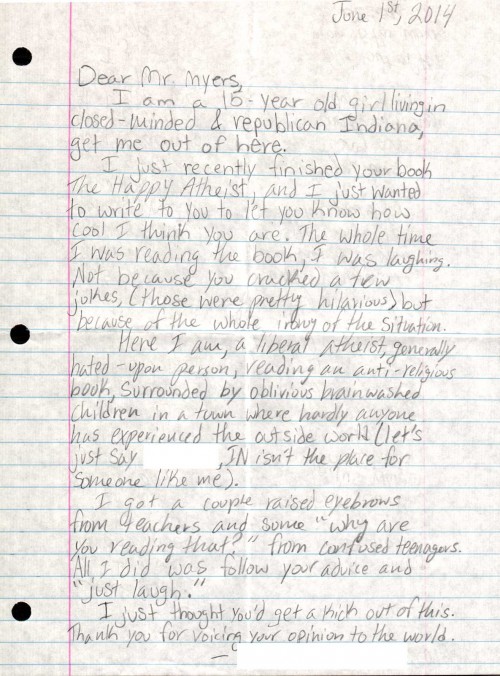 June 1st, 2014
Dear Mr. Myers,
I am a 16-year old girl living in
closed-minded & republican Indiana,
get me out of here.
I just recently finished your book
The Happy Atheist, and I just wanted
to write to you to let you know how
cool I think you are. The whole time
I was reading the book, I was laughing.
Not because you cracked a few
jokes, (those were pretty hilarious) but
because of the whole irony of the situation.
Here I am, a liberal atheist, generally
hated-upon person, reading an anti-religious
book, surrounded by oblivious brainwashed
children in a town where hardly anyone
has experienced the outside world (let's
just say , IN isn't the place for
someone like me).
I got a couple raised eyebrows
from teachers and some "why are
you reading that?" from confused teenagers.
All I did was follow your advice and
"just laugh."
I just thought you'd get a kick out of this.
Thank you for voicing your opinion to the world.
—